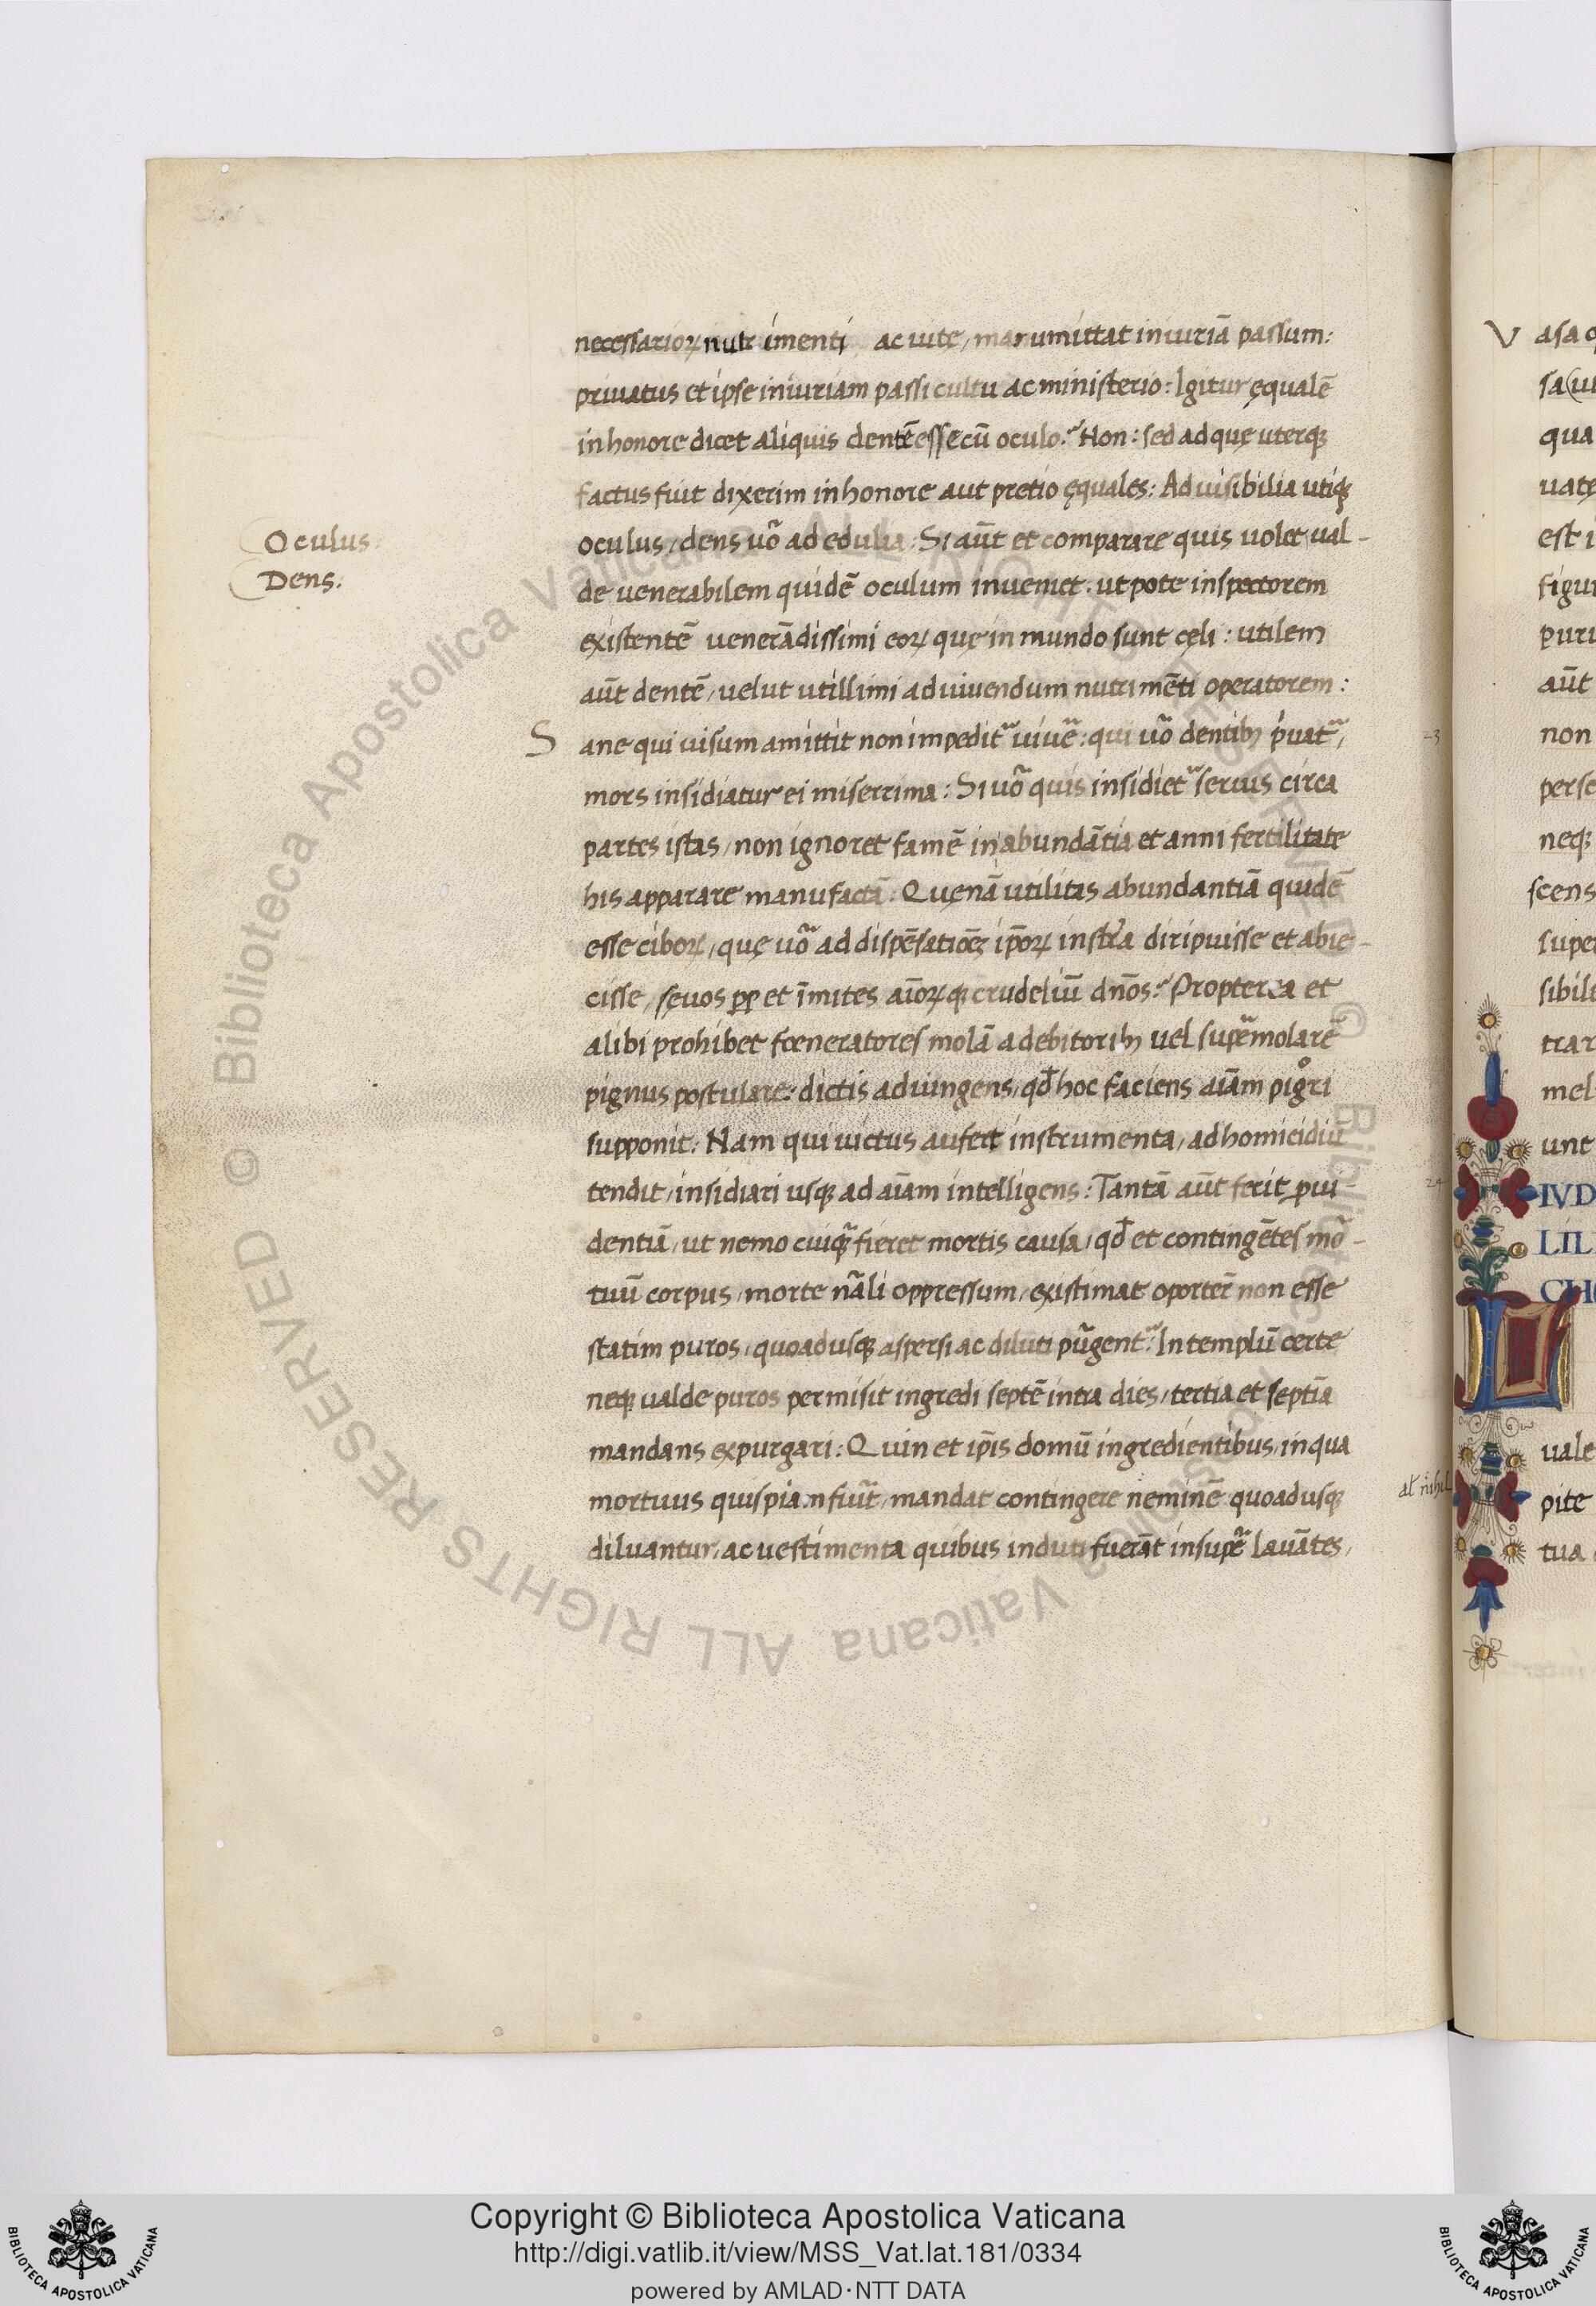 necessarioꝝ nutrimenti ac uite, manumittat iniuriā passum:
priuatus et ipse iniuriam passi cultu ac ministerio: Igitur ęqualē
in honore dicet aliquis dentē esse cū oculo? Non: sed ad quę uterqꝫ
factus fuit dixerim in honore aut pretio ęquales: Ad uisibilia utiqꝫ
Oculus.
Dens.
oculus, dens uo᷑ ad edulia: Si aūt et comparare quis uolet ual-
de uenerabilem quidē oculum inueniet: utpote inspectorem
existentē uenerādissimi eoꝝ quę in mundo sunt cęli: utilem
aūt dentē, uelut utillimi ad uiuendum nutrimēti operatorem:
Sane qui uisum amittit non impedit᷑ uiue᷑: qui uo᷑ dentibꝫ ṕuat᷑,
mors insidiatur ei miserrima: Si uo᷑ quis insidiet᷑ seruus circa
partes istas, non ignoret famē in abundātia et anni fertilitate
his apparare manufactā: Quęnā utilitas abundantiā quidē
esse ciboꝝ, quę uo᷑ ad dispēsatiōeꝫ ip̄oꝝ instr̄a diripuisse et abie-
cisse, sęuos ꝑꝑ et īmites aīoꝝqꝫ crudeliū dn̄os? Propterea et
alibi prohibet foeneratores molā a debitoribꝫ uel supe᷑molare᷑
pignus postulare: dictis adiungens, qđ hoc faciens aīam pigͦri
supponit: Nam qui uictus aufert instrumenta, ad homicidiū
tendit, insidiari usqꝫ ad aīam intelligens: Tantā aūt ferit ꝓui-
dentiā, ut nemo cuiqꝫ᷑ fieret mortis causa, qđ et contingētes mo᷑-
tuū corpus, morte na᷑li oppressum, existimat oporter̄ non esse
statim puros, quoadusqꝫ aspersi ac diluti pu᷑gent᷑: In templū certe
neqꝫ ualde puros permisit ingredi septē intra dies, tertia et septīa
mandans expurgari: Quin et ip̄is domū ingredientibus, in qua
mortuus quispiam fiu᷑t, mandat contingere neminē quoadusqꝫ
diluantur, ac uestimenta quibus induti fuerāt insupe᷑ lauātes,
23
24
al' nihil
Vasa
sa(
qua
uatę
est i
figur
puri
aūt
non
perse
neqꝫ
scens
super
sibile
trar
mel
unt
IVD
LIL
CH
L
uale
pite
tua
Copyright © Biblioteca Apostolica Vaticana
http://digi.vatlib.it/view/MSS_Vat.lat.181/0334
powered by AMLAD·NTT DATA
BIBLIOTECA APOSTOLICA VATICANA
BIBLIOTECA APOSTOLICA VATICANA
© Biblioteca Apostolica Vaticana ALL RIGHTS RESERVED © Biblioteca Apostolica Vaticana ALL RIGHTS RESERVED